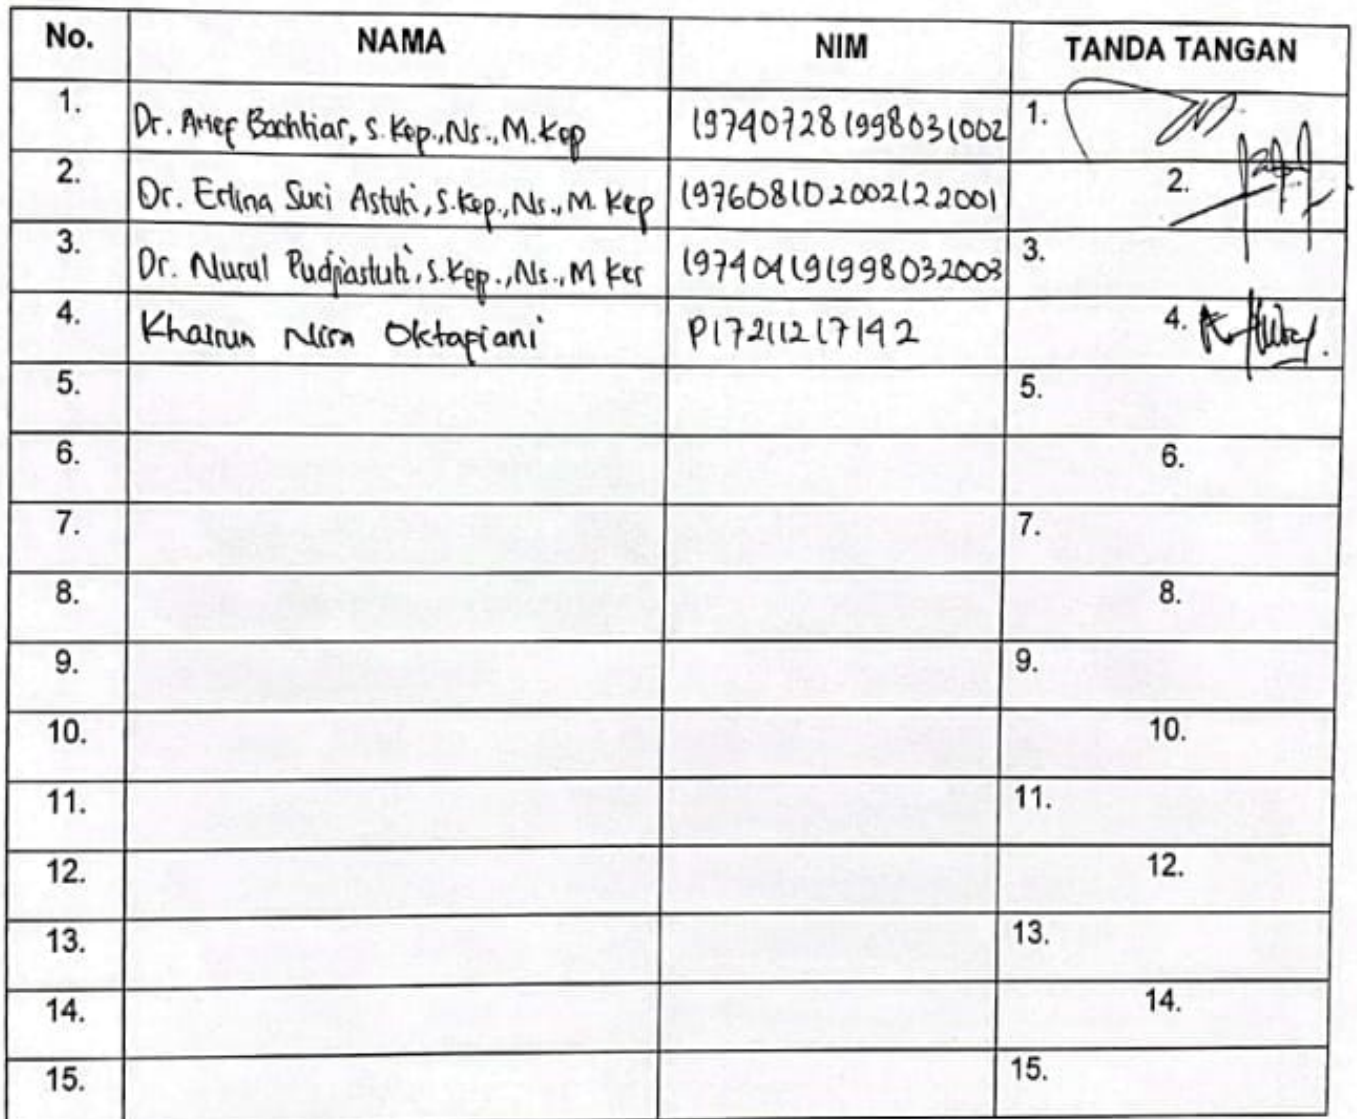 No. NAMA NIM TANDA TANGAN
1. Dr. Arief Bachtiar, S.Kep.,Ns., M.Kep 197407281998031002 1.
2. Dr. Erlina Suci Astuti, S.Kep., Ns., M.Kep 197608102002122001 2.
3. Dr. Nurul Pudjiastuti, S.Kep.,Ns., M Kes 197404191998032003 3.
4. Khairun Nisa Oktapiani P17211217142 4.
5. 5.
6. 6.
7. 7.
8. 8.
9. 9.
10. 10.
11. 11.
12. 12.
13. 13.
14. 14.
15. 15.